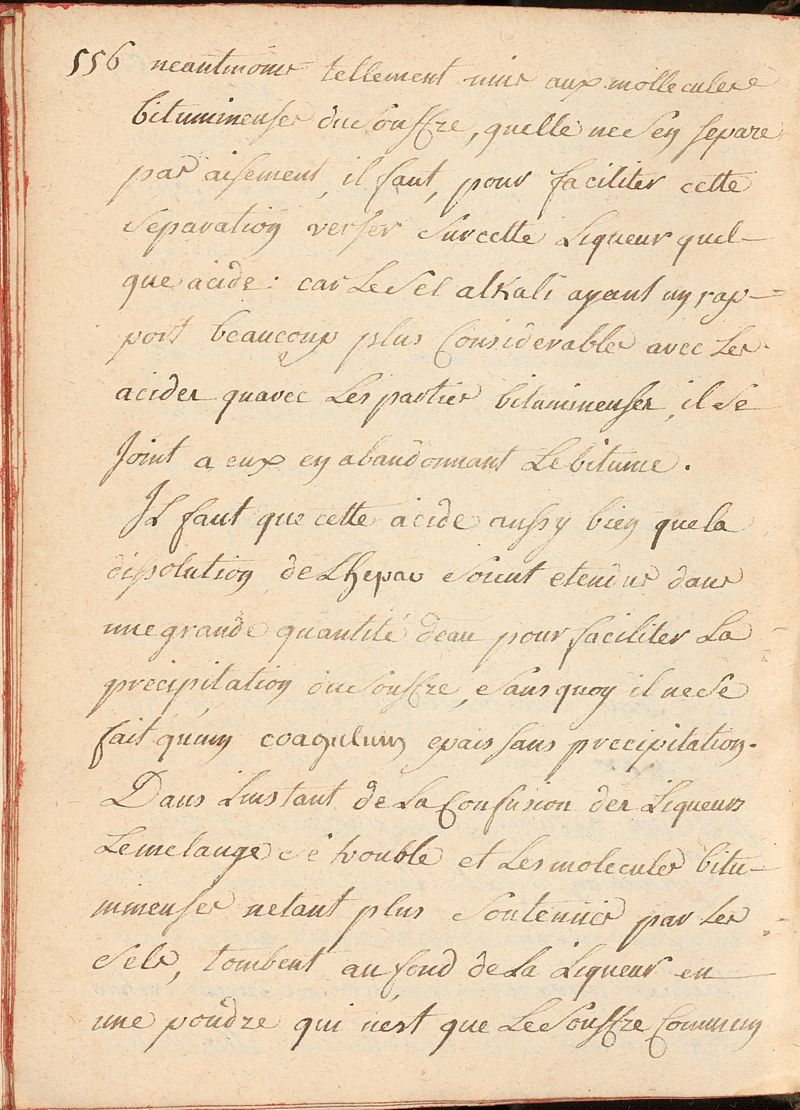 556 neantmoins tellement unis aux mollecules
bitumineuses du souffre, quelle ne sen separe
pas aisement, il faut, pour faciliter cette
separation verser sur cette Liqueur quel-
que acide: car Le Sel alkali ayant un rap-
port beaucoup plus Considerables avec Les
acides quavec Les parties bitumineuses, il se
Joint a eux en abandonnant Le bitume.
Il faut que cette acide aussy bien que la
dissolution de Lhepar soient etendus dans
une grande quantité deau pour faciliter La
precipitation du souffre, sans quoy il ne se
fait qu'un coagulum epais sans precipitation.
Dans Linstant de La Confusion des Liqueurs
Le melange se trouble et Les molecules bitu-
mineuses netant plus soutenües par Les
Sels, tombent au fond de La Liqueur en
une poudre qui n'est que Le souffre Commun